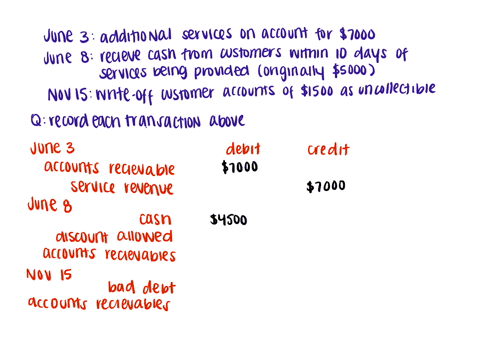 June 3: additional services on account for $7000
June 8: recieve cash from customers within 10 days of
services being provided (originally $5000)
Nov 15: write-off customer accounts of $1500 as uncollectible
Q: record each transaction above
June 3 debit credit
accounts recievable $7000
service revenue $7000
June 8
cash $4500
discount allowed
accounts recievables
Nov 15
bad debt
accounts recievables